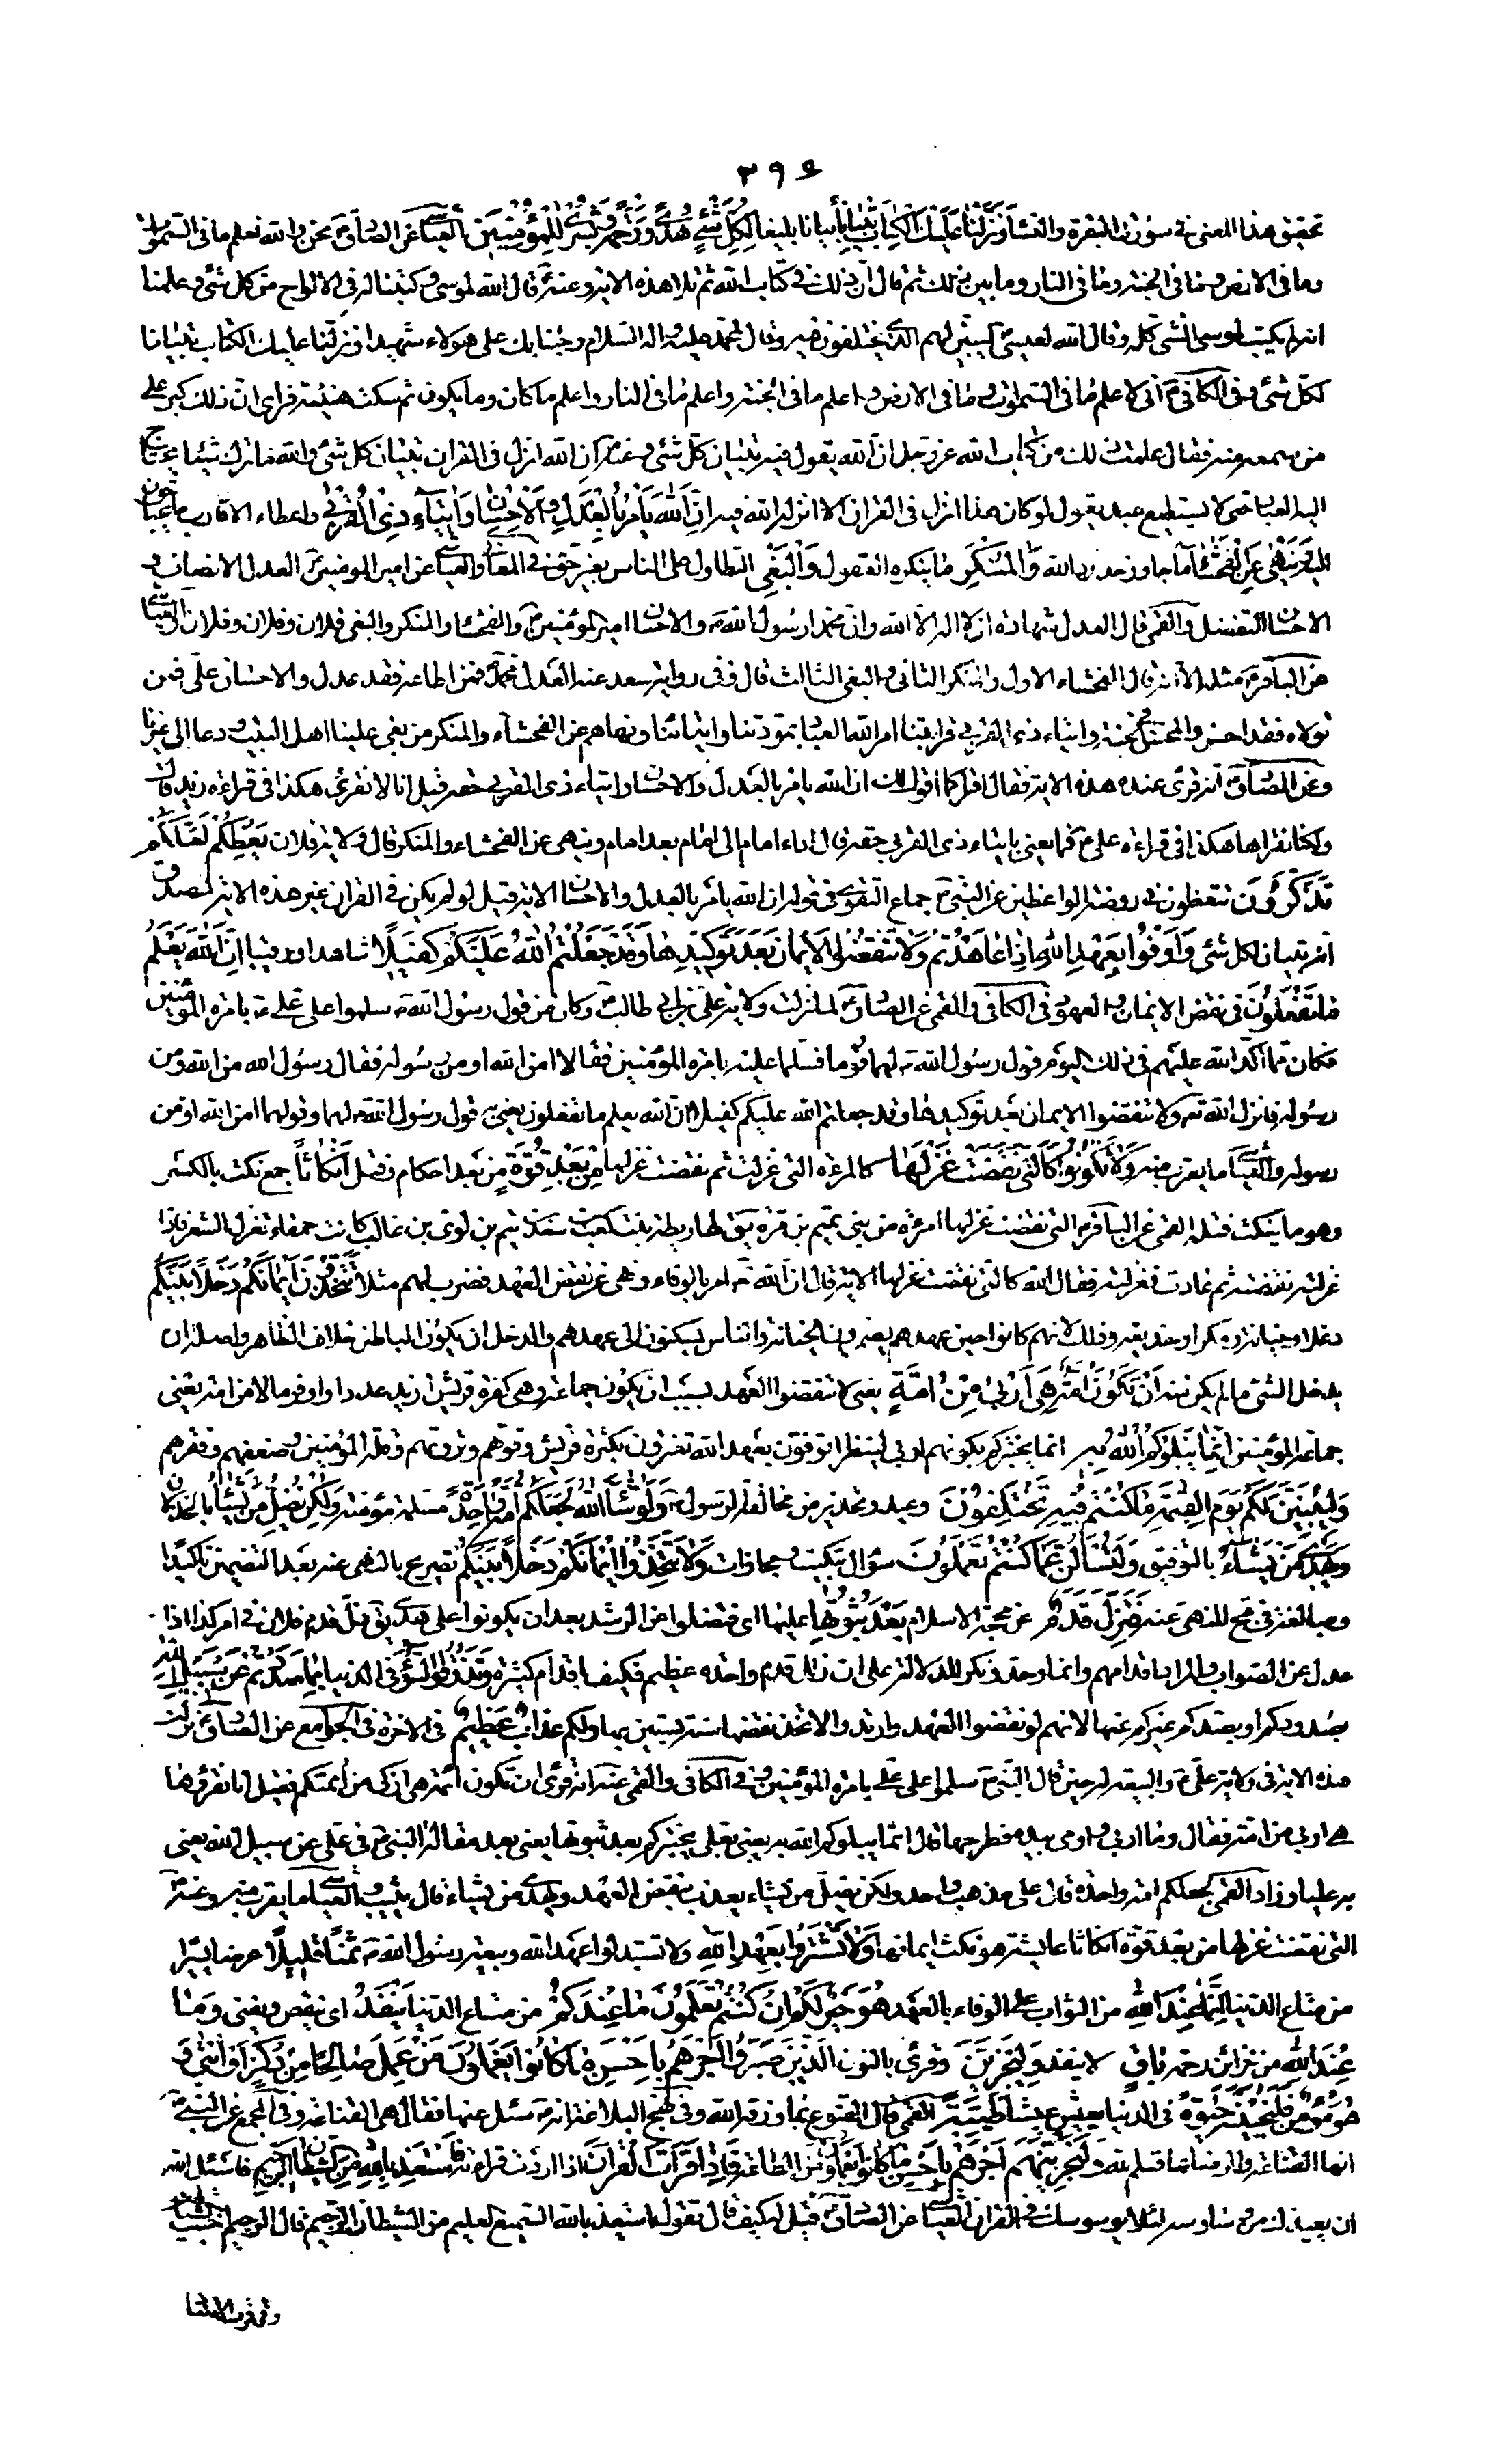 ٣٩۶
تحقيق هذا المعنى فى سورتى البقرة والنساء وَنَزَّلْنَا عَلَيْكَ الْكِتَابَ تِبْيَانًا بيانا بليغا لِكُلِّ شَيْءٍ وَهُدًى وَرَحْمَةً وَبُشْرَى لِلْمُؤْمِنِينَ العياشى عن الصادق ع نحن والله نعلم ما فى السموات
وما فى الارض وما فى الجنة وما فى النار وما بين ذلك ثم قال ان ذلك فى كتاب الله ثم تلا هذه الاية وعنه ع قال الله لموسى وكتبنا له فى الالواح من كل شئ فعلمنا
انه لم يكتب لموسى الشئ كله وقال الله لعيسى ليبين لهم الذى يختلفون فيه وقال لمحمد عليه واله السلام وجئنا بك على هؤلاء شهيدا ونزلنا عليك الكتاب تبيانا
لكل شئ وفى الكافى ع انى لاعلم ما فى السموات وما فى الارض واعلم ما فى الجنة واعلم ما فى النار واعلم ما كان وما يكون ثم سكت هنيئة فراى ان ذلك كبر على
من سمعه منه فقال علمت ذلك من كتاب الله عز وجل ان الله يقول فيه تبيان كل شئ وعنه ع ان الله انزل فى القران تبيان كل شئ والله ما ترك شيئا يحتاج
اليه العباد حتى لا يستطيع عبد يقول لو كان هذا انزل فى القران الا انزله الله فيه اِنَّ اللهَ يَأْمُرُ بِالْعَدْلِ وَالْاِحْسَانِ وَاِيتَآءِ ذِي الْقُرْبَى واعطاء الاقارب ما يحتاجون
اليه وَيَنْهَى عَنِ الْفَحْشَآءِ ما جاوز حدود الله وَالْمُنْكَرِ ما ينكره العقول وَالْبَغْيِ التطاول على الناس بغير حق فى المعانى والعياشى عن امير المؤمنين ع العدل الانصاف و
الاحسان التفضل والقمى قال العدل شهادة ان لا اله الا الله وان محمدا رسول الله ص والاحسان امير المؤمنين ع والفحشاء والمنكر والبغى فلان وفلان وفلان العياشى
عن الباقر ع مثله الا انه قال الفحشاء الاول والمنكر الثانى والبغى الثالث قال وفى رواية سعد عنه العدل محمد فمن اطاعه فقد عدل والاحسان على فمن
تولاه فقد احسن والمحسن فى الجنة وايتاء ذى القربى قرابتنا امر الله العباد بمودتنا وايتائنا ونهاهم عن الفحشاء والمنكر من بغى علينا اهل البيت ودعا الى غيرنا
وعن الصادق ع انه قرئ عنده هذه الاية فقال اقرأ كما اقول لك ان الله يامر بالعدل والاحسان وايتاء ذى القربى حقه فقيل انا لا نقرئ هكذا فى قراءة زيد قال
ولكنا نقراها هكذا فى قراءة على ع فما يعنى بايتاء ذى القربى حقه قال اداء امام الى امام بعد امام وينهى عن الفحشاء والمنكر قال ولاية فلان يَعِظُكُمْ لَعَلَّكُمْ
تَذَكَّرُونَ تتعظون فى روضة الواعظين عن النبى ص جماع التقوى فى قوله ان الله يأمر بالعدل والاحسان الاية قيل لو لم يكن فى القران غير هذه الاية لصدق
انه تبيان لكل شئ وَاَوْفُوا بِعَهْدِ اللهِ اِذَا عَاهَدْتُمْ وَلَا تَنْقُضُوا الْاَيْمَانَ بَعْدَ تَوْكِيدِهَا وَقَدْ جَعَلْتُمُ اللهَ عَلَيْكُمْ كَفِيلًا شاهدا ورقيبا اِنَّ اللهَ يَعْلَمُ
مَا تَفْعَلُونَ فى نقض الايمان والعهود فى الكافى والقمى عن الصادق ع لما نزلت ولاية على بن ابى طالب ع وكان من قول رسول الله ص سلموا على على ع بامرة المؤمنين
فكان مما اكد الله عليهم فى ذلك اليوم قول رسول الله ص لهما قوما فسلما عليه بامرة المؤمنين فقالا امن الله او من رسوله فقال رسول الله من الله ومن
رسوله فانزل الله تع ولا تنقضوا الايمان بعد توكيدها وقد جعلتم الله عليكم كفيلا ان الله يعلم ما تفعلون يعنى به قول رسول الله ص لهما وقولهما امن الله او من
رسوله والعياشى ما يقرب منه وَلَا تَكُونُوا كَالَّتِي نَقَضَتْ غَزْلَهَا كالمرءة التى غزلت ثم نقضت غزلها مِنْ بَعْدِ قُوَّةٍ من بعد احكام وفتل اَنْكَاثًا جمع نكث بالكسر
وهو ما ينكث فتله القمى عن الباقر ع التى نقضت غزلها امرءة من بنى تميم بن مرة يقال لها ريطة بنت كعب بن سعد بن تيم بن لوى بن غالب كانت حمقاء تغزل الشعر فاذا
غزلته نقضته ثم عادت فغزلته فقال الله كالتى نقضت غزلها الاية قال ان الله تع امر بالوفاء ونهى عن نقض العهد فضرب لهم مثلا تَتَّخِذُونَ اَيْمَانَكُمْ دَخَلًا بَيْنَكُمْ
دغلا وخيانة ومكرا وخديعة وذلك لانهم كانوا حين عهدهم يضمرون الخيانة والناس يسكنون الى عهدهم والدخل ان يكون الباطن خلاف الظاهر واصله ان
يدخل الشئ ما لم يكن منه اَنْ تَكُونَ اُمَّةٌ هِيَ اَرْبَى مِنْ اُمَّةٍ يعنى لا تنقضوا العهد بسبب ان يكون جماعة وهى كفرة قريش ازيد عددا واوفر مالا من امة يعنى
جماعة المؤمنين اِنَّمَا يَبْلُوكُمُ اللهُ بِهِ انما يختبركم بكونهم اربى لينظر اتوفون بعهد الله ام تغترون بكثرة قريش وقوتهم وثروتهم وقلة المؤمنين وضعفهم وفقرهم
وَلَيُبَيِّنَنَّ لَكُمْ يَوْمَ الْقِيمَةِ مَا كُنْتُمْ فِيهِ تَخْتَلِفُونَ وعيد وتحذير من مخالفة الرسول ص وَلَوْ شَآءَ اللهُ لَجَعَلَكُمْ اُمَّةً وَاحِدَةً مسلمة مؤمنة وَلَكِنْ يُضِلُّ مَنْ يَشَآءُ بالخذلان
وَيَهْدِي مَنْ يَشَآءُ بالتوفيق وَلَتُسْأَلُنَّ عَمَّا كُنْتُمْ تَعْمَلُونَ سؤال تبكيت ومجازات وَلَا تَتَّخِذُوا اَيْمَانَكُمْ دَخَلًا بَيْنَكُمْ تصريح بالنهى عنه بعد التضمين تاكيدا
ومبالغة فى قبح المنهى عنه فَتَزِلَّ قَدَمٌ عن محجة الاسلام بَعْدَ ثُبُوتِهَا عليها اى فتضلوا عن الرشد بعد ان يكونوا على هدى يق زل قدم فلان فى امر كذا اذا
عدل عن الصواب والمراد اقدامهم وانما وحد ونكر للدلالة على ان زلل قدم واحدة عظيم فكيف باقدام كثيرة وَتَذُوقُوا السُّوءَ فى الدنيا بِمَا صَدَدْتُمْ عَنْ سَبِيلِ اللهِ
بصدودكم او بصدكم غيركم عنها لانهم لو نقضوا العهد وارتدوا لاتخذ نقضها سنة يستن بها وَلَكُمْ عَذَابٌ عَظِيمٌ فى الاخرة فى الجوامع عن الصادق ع نزلت
هذه الاية فى ولاية على ع والبيعة له حين قال النبى ص سلموا على على بامرة المؤمنين وفى الكافى والقمى عنه ع انه قرئ ان تكون ائمة هى ازكى من ائمتكم فقيل انا نقرؤها
هى اربى من امة فقال وما اربى واومى بيده فطرحها قال انما يبلوكم الله به يعنى بعلى يختبركم بعد ثبوتها يعنى بعد مقالة النبى ص فى على عن سبيل الله يعنى
به عليا وزاد القمى لجعلكم امة واحدة قال على مذهب واحد ولكن يضل من يشاء يعذب بنقض العهد ويهدى من يشاء قال يثيب والعياشى ما يقرب منه وعنه ع
التى نقضت غزلها من بعد قوة انكاثا عايشة هو نكث ايمانها وَلَا تَشْتَرُوا بِعَهْدِ اللهِ ولا تستبدلوا عهد الله وبيعة رسول الله ص ثَمَنًا قَلِيلًا عرضا يسيرا
من متاع الدنيا اِنَّمَا عِنْدَ اللهِ من الثواب على الوفاء بالعهد هُوَ خَيْرٌ لَكُمْ اِنْ كُنْتُمْ تَعْلَمُونَ مَا عِنْدَكُمْ من متاع الدنيا يَنْفَدُ اى ينقص ويفنى وَمَا
عِنْدَ اللهِ من خزائن رحمته بَاقٍ لا ينفد وَلَيَجْزِيَنَّ وقرئ بالنون الَّذِينَ صَبَرُوا اَجْرَهُمْ بِاَحْسَنِ مَا كَانُوا يَعْمَلُونَ مَنْ عَمِلَ صَالِحًا مِنْ ذَكَرٍ اَوْ اُنْثَى وَ
هُوَ مُؤْمِنٌ فَلَنُحْيِيَنَّهُ حَيَوةً فى الدنيا يعيش عيشا طَيِّبَةً القمى قال القنوع بما رزقه الله وفى نهج البلاغة انه ع سئل عنها فقال هى القناعة وفى المجمع عن النبى ص
انها القناعة والرضا بما قسم الله وَلَنَجْزِيَنَّهُمْ اَجْرَهُمْ بِاَحْسَنِ مَا كَانُوا يَعْمَلُونَ من الطاعة فَاِذَا قَرَاْتَ الْقُرْآنَ اذا اردت قراءته فَاسْتَعِذْ بِاللهِ مِنَ الشَّيْطَانِ الرَّجِيمِ فاسئل الله
ان يعيذك من وساوسه لئلا يوسوسك فى القران العياشى عن الصادق ع قيل له كيف قال تقول استعيذ بالله السميع العليم من الشيطان الرجيم قال الرجيم اخبث الشياطين